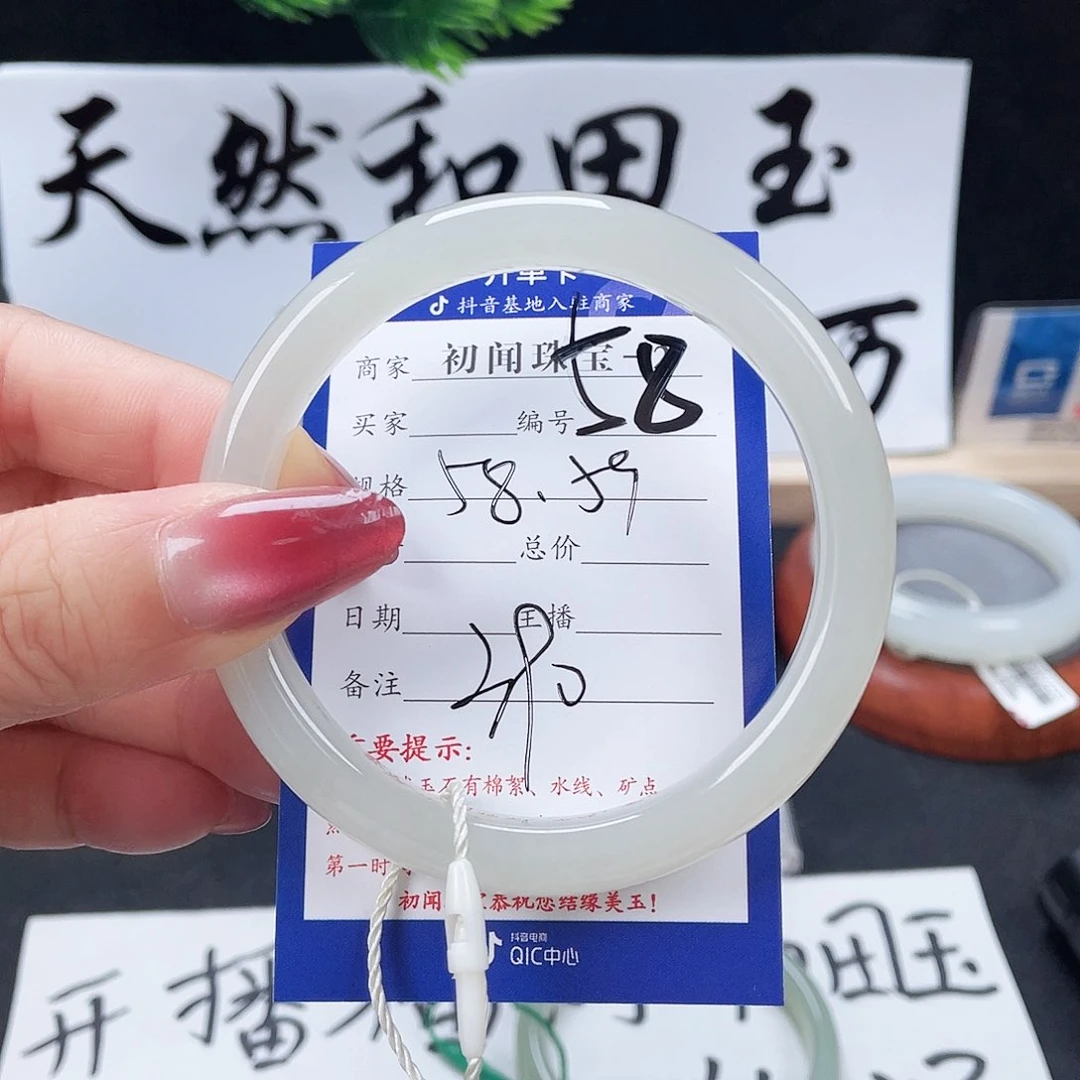 天然和田玉
万
开单卡
抖音基地入驻商家
商家 初闻珠宝
买家 编号 58
规格 58.59
总价
日期 主播
备注
重要提示:
玉石有棉絮、水线、矿点
第一时
初闻 恭祝您结缘美玉!
抖音电商
QIC中心
开播 和田玉